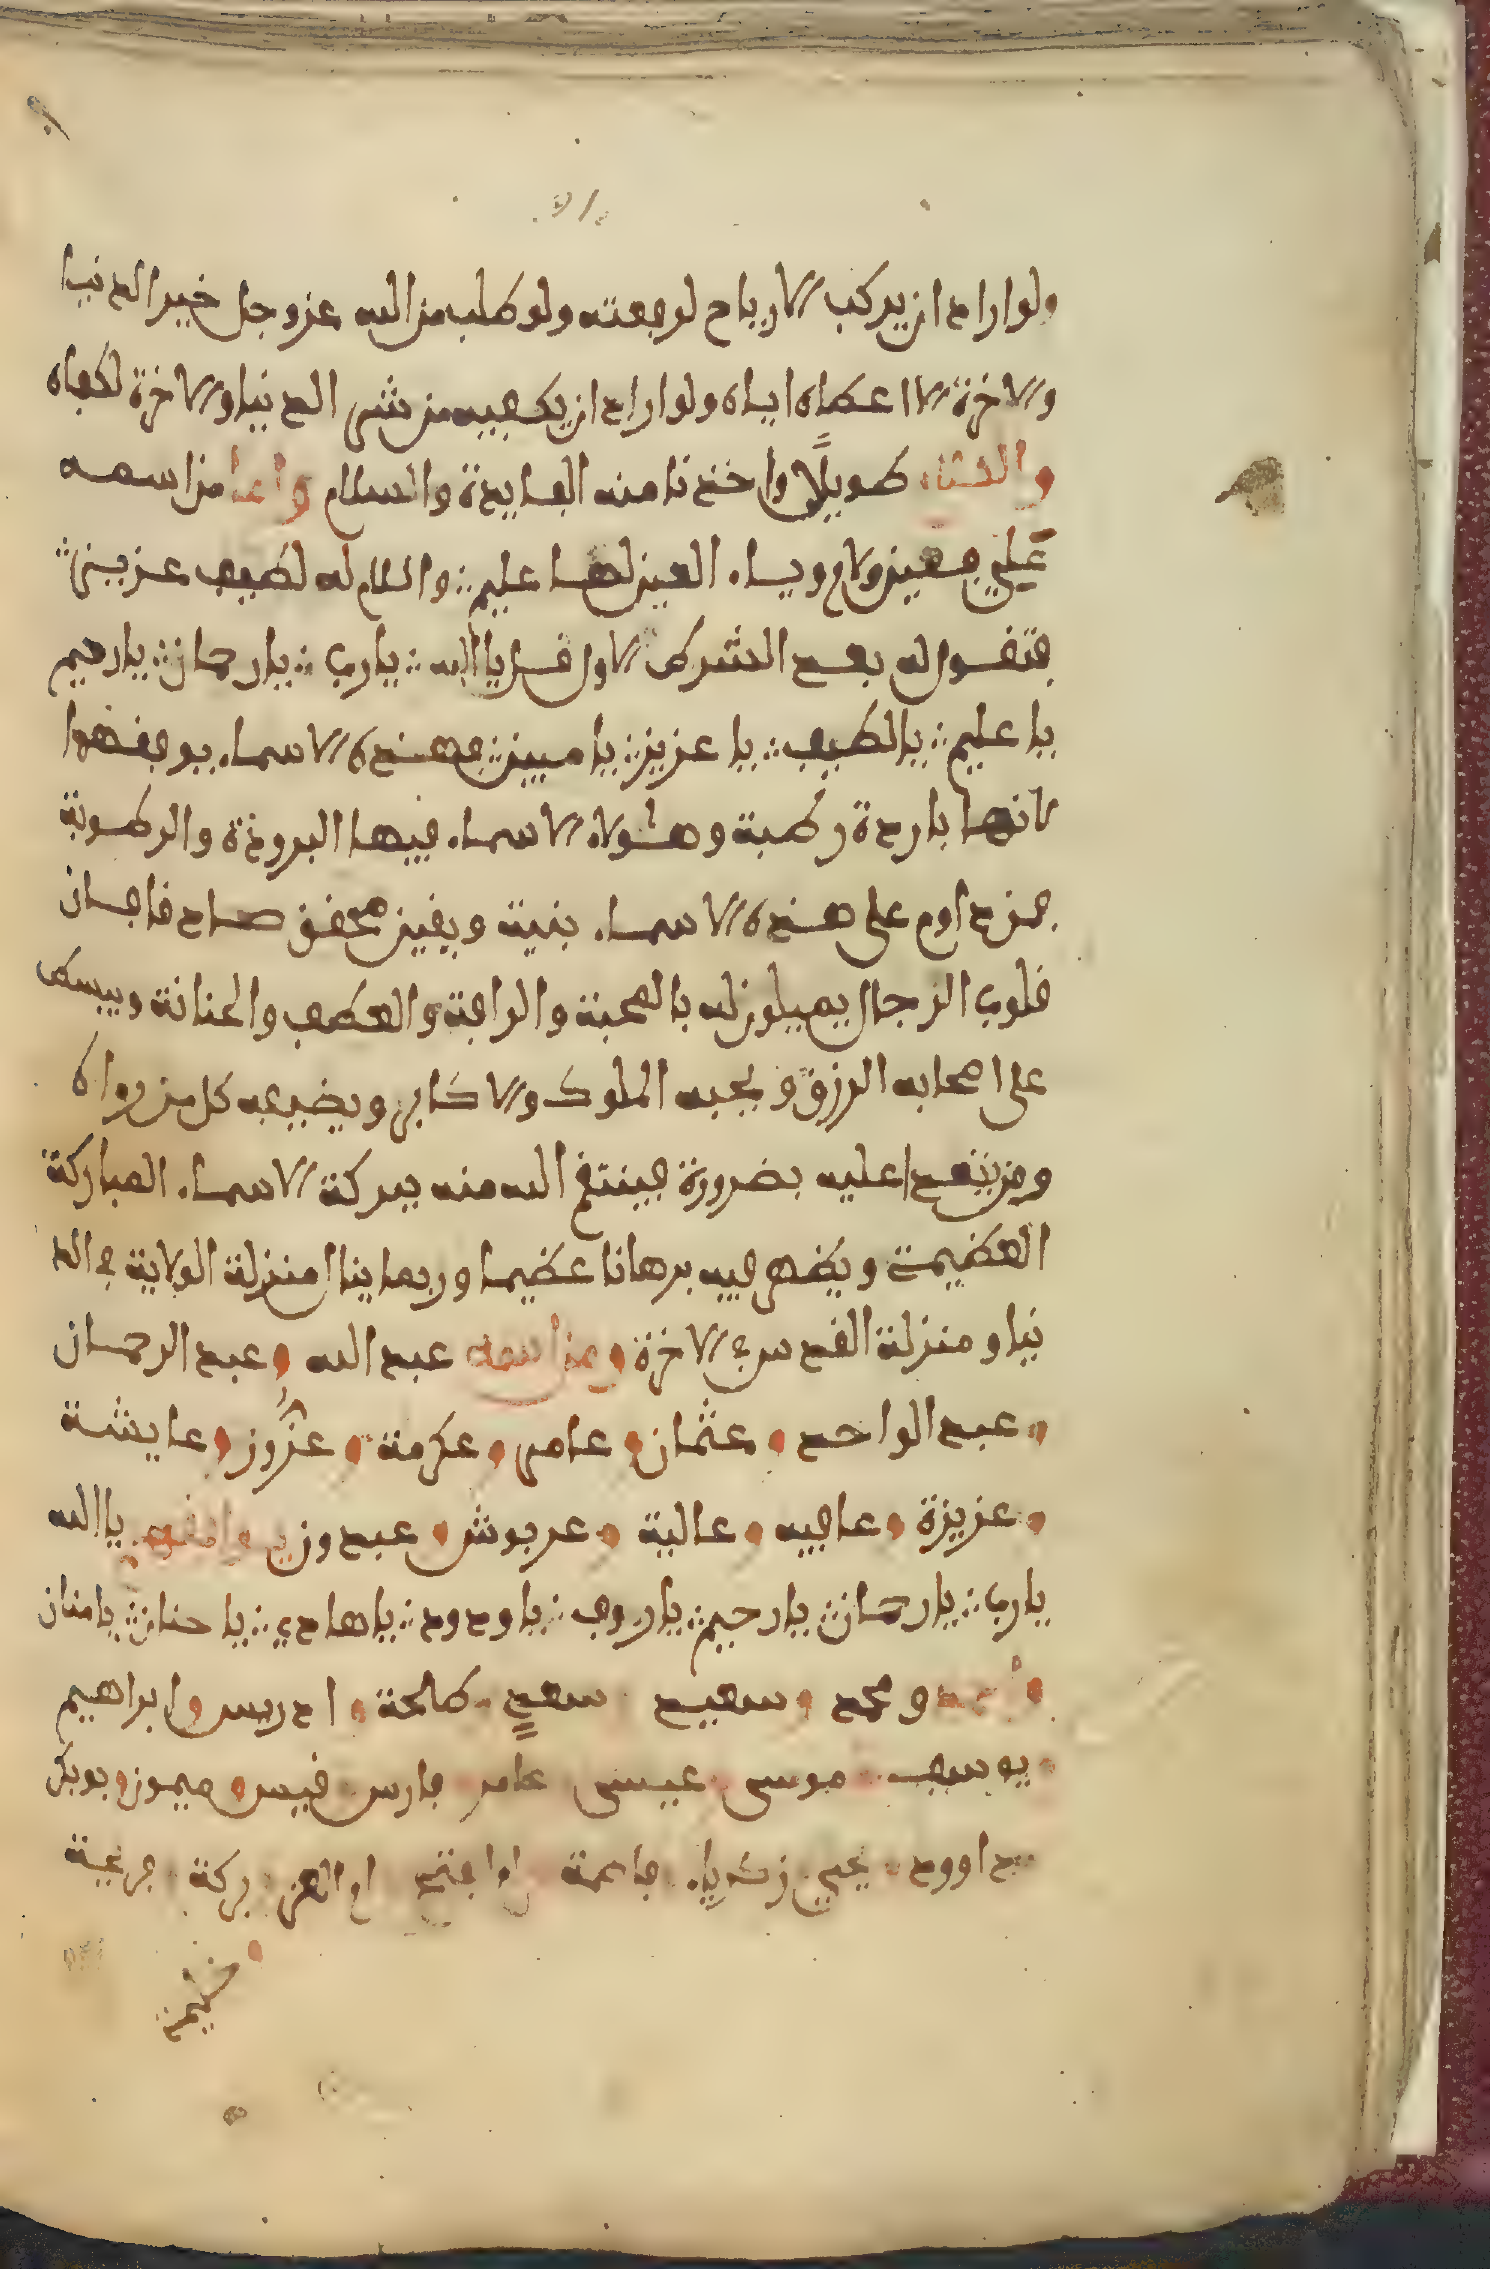 ولو اراد ان يركب الارياح لرفعته ولو طلب من الله عز وجل خير الدنيا
والاخرة الا اعطاه اياه ولو اراد ان يكفيه من شر الدنيا والاخرة لكفاه
طويلا واخذنا منه الفايدة والسلام واما من اسمه
علي فعين ولام وياء العين لها عليم واللام له لطيف عزيز
فتقول له بعد الشرط الاول قل يا الله يا رب يا رحمان يا رحيم
يا عليم يا لطيف يا عزيز يا مبين فهذه الاسماء يوفقها
لانها باردة رطبة وهؤلاء الاسماء فيها البرودة والرطوبة
فمن داوم على هذه الاسماء بنية ويقين محقق صادقا فان
قلوب الرجال يميلون له بالمحبة والرافة والعطف والحنانة ويبسط
على اصحابه الرزق ويحبه الملوك والاكابر ويضيعه كل من يراه
ومن تعدا عليه بضرورة فينتقم الله منه ببركة الاسماء المباركة
العظيمة ويظهر فيه برهانا عظيما وربما ينال منزلة الولاية في الد
نيا ومنزلة القدس في الاخرة ومن اسمه عبد الله وعبد الرحمان
عبد الواحد عثمان عامر عكرمة عزوز عايشة
عزيزة عافيه عالية عربوش عبدون يا الله
يا رب يا رحمان يا رحيم يا روف يا ودود يا هادي يا حنان يا منان
ومحمد سعيد سعد طالحة ادريس وابراهيم
يوسف موسى عيسى عامر فارس قيس ميمون بوبكر
داوود يحيى زكرياء فاطمة ام الفتح ام العز بركة